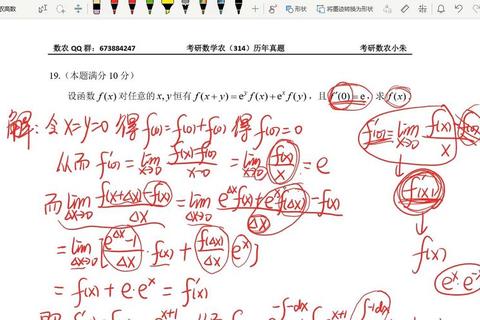 形状 将墨迹转换为形状
数农 QQ 群：673884247 考研数学农（314）历年真题 考研数农小朱
19.（本题满分 10 分）
设函数 f(x) 对任意的 x, y 恒有 f(x+y)=e^y f(x)+e^x f(y)，且 f'(0)=e，求 f(x).
解: 令 x=y=0 得 f(0)=f(0)+f(0) 得 f(0)=0
从而 f'(0)=lim_{x→0} (f(x)-f(0))/(x-0) = lim_{x→0} f(x)/x = e
而 lim_{Δx→0} (f(x+Δx)-f(x))/Δx = lim_{Δx→0} (e^{Δx}f(x)+e^x f(Δx)-f(x))/Δx
= lim_{Δx→0} [(e^{Δx}-1)/Δx · f(x) + f(Δx)/Δx e^x]
= f(x)+e·e^x = f'(x)
f'(x)
f(x)
e^x